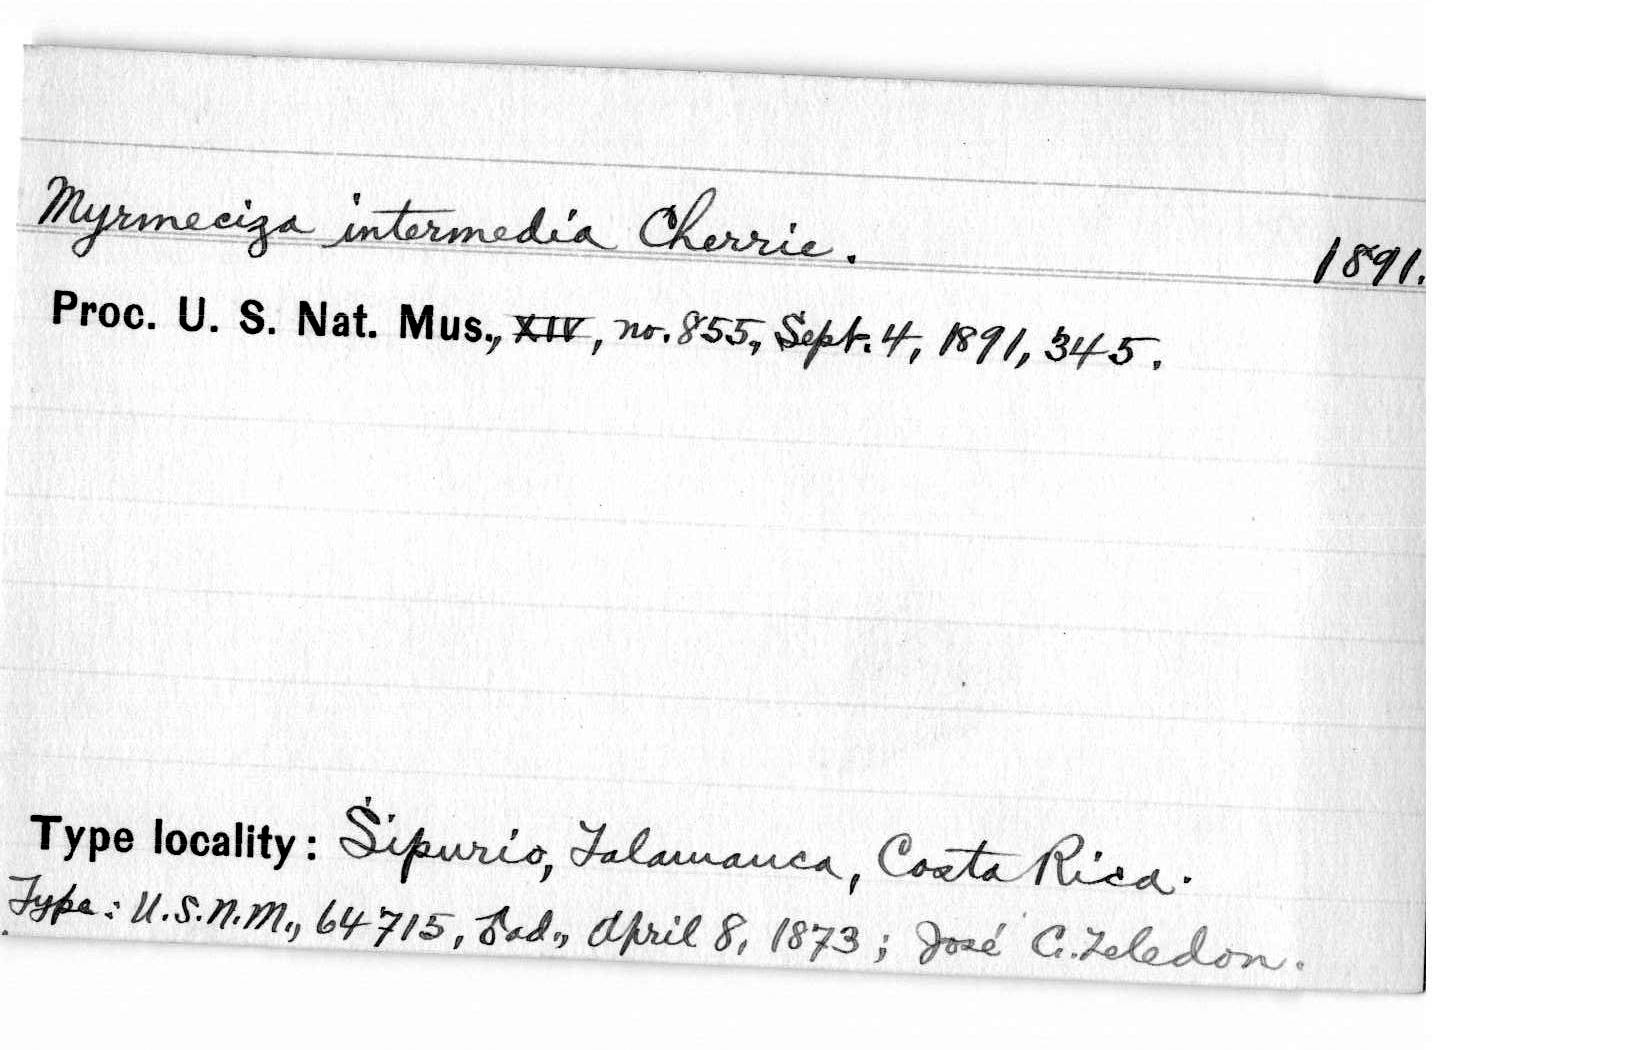 Myrmeciza intermedia Cherrie. 1891.
Proc. U. S. Nat. Mus., XIV, no. 855, Sept. 4, 1891, 345.
Type locality: Sipurio, Talamanca, Costa Rica.
Type: U.S.N.M., 64715, ♂ ad., April 8, 1873; José C. Zeledon.